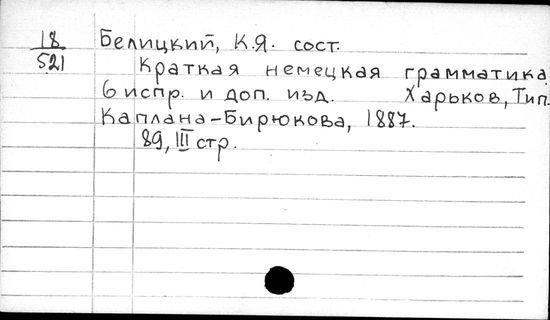 18
521
Белицкий, К.Я. сост.
Краткая немецкая грамматика.
6 испр. и доп. изд. Харьков, Тип.
Каплана-Бирюкова, 1887.
89, III стр.